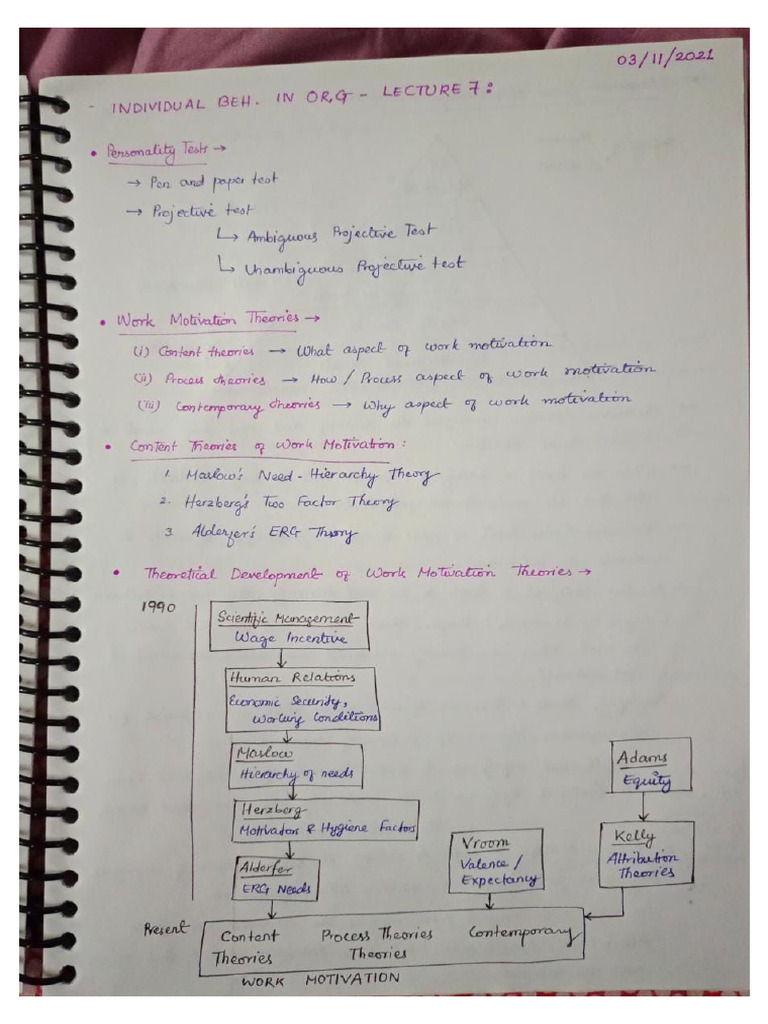 03/11/2021
- INDIVIDUAL BEH. IN ORG - LECTURE 7:
• Personality Tests →
→ Pen and paper test
→ Projective test
↳ Ambiguous Projective Test
↳ Unambiguous Projective test
• Work Motivation Theories →
(i) Content theories → What aspect of work motivation
(ii) Process theories → How / Process aspect of work motivation
(iii) Contemporary theories → Why aspect of work motivation
• Content Theories of Work Motivation:
1. Maslow's Need-Hierarchy Theory
2. Herzberg's Two Factor Theory
3. Alderfer's ERG Theory
• Theoretical Development of Work Motivation Theories →
1990
Scientific Management-
Wage Incentive
Human Relations
Economic Security,
Working Conditions
Maslow
Hierarchy of needs
Herzberg
Motivators & Hygiene Factors
Alderfer
ERG Needs
Vroom
Valence /
Expectancy
Adams
Equity
Kelly
Attribution
Theories
Present
Content Process Theories Contemporary
Theories Theories
WORK MOTIVATION